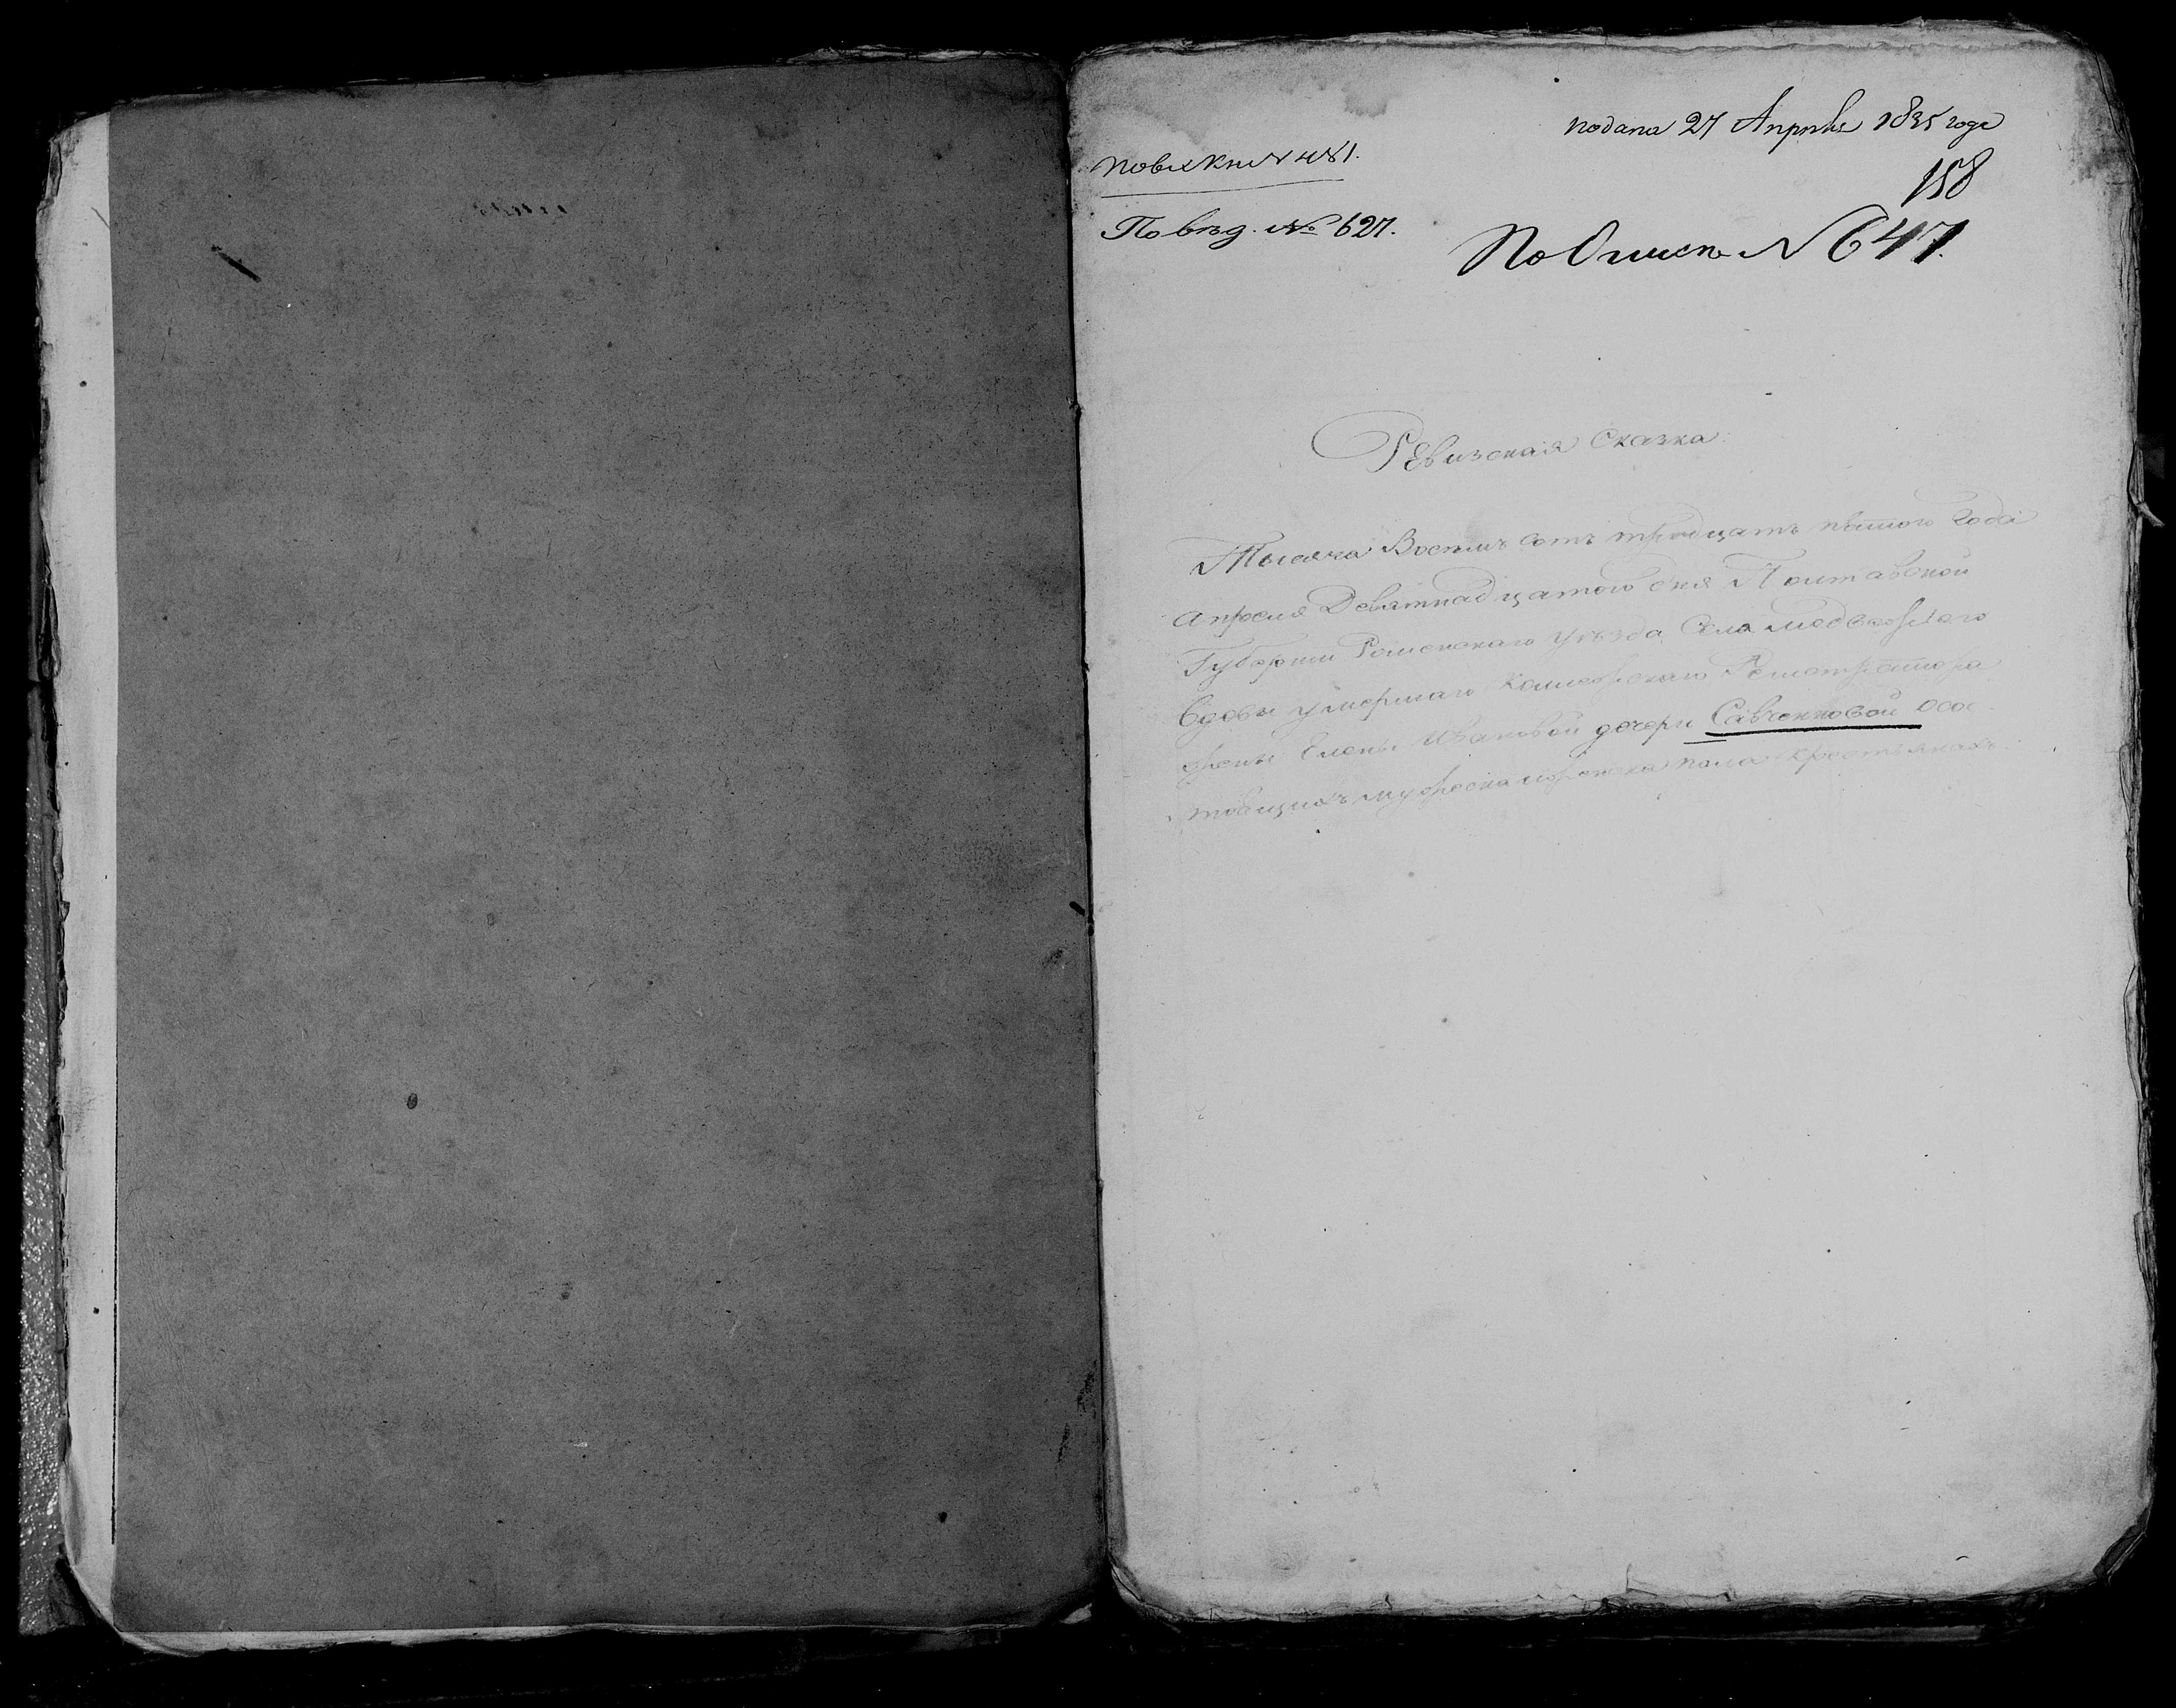 подана 27 Апрѣля 1835 года
по вх кни № 481.
158
По вѣд. № 627.
По Описи № 647.
Ревизская Сказка
Тысяча Восемь сотъ тридцать пятого Года
апреля Девятнадцатого дня Полтавской
Губернии Роменскаго уѣзда Села
вдовы умершаго Коллежскаго Регистратора
жены Елены Ивановой дочери Савченковой о сос-
тоящихъ мужеска и женска пола крестьянахъ